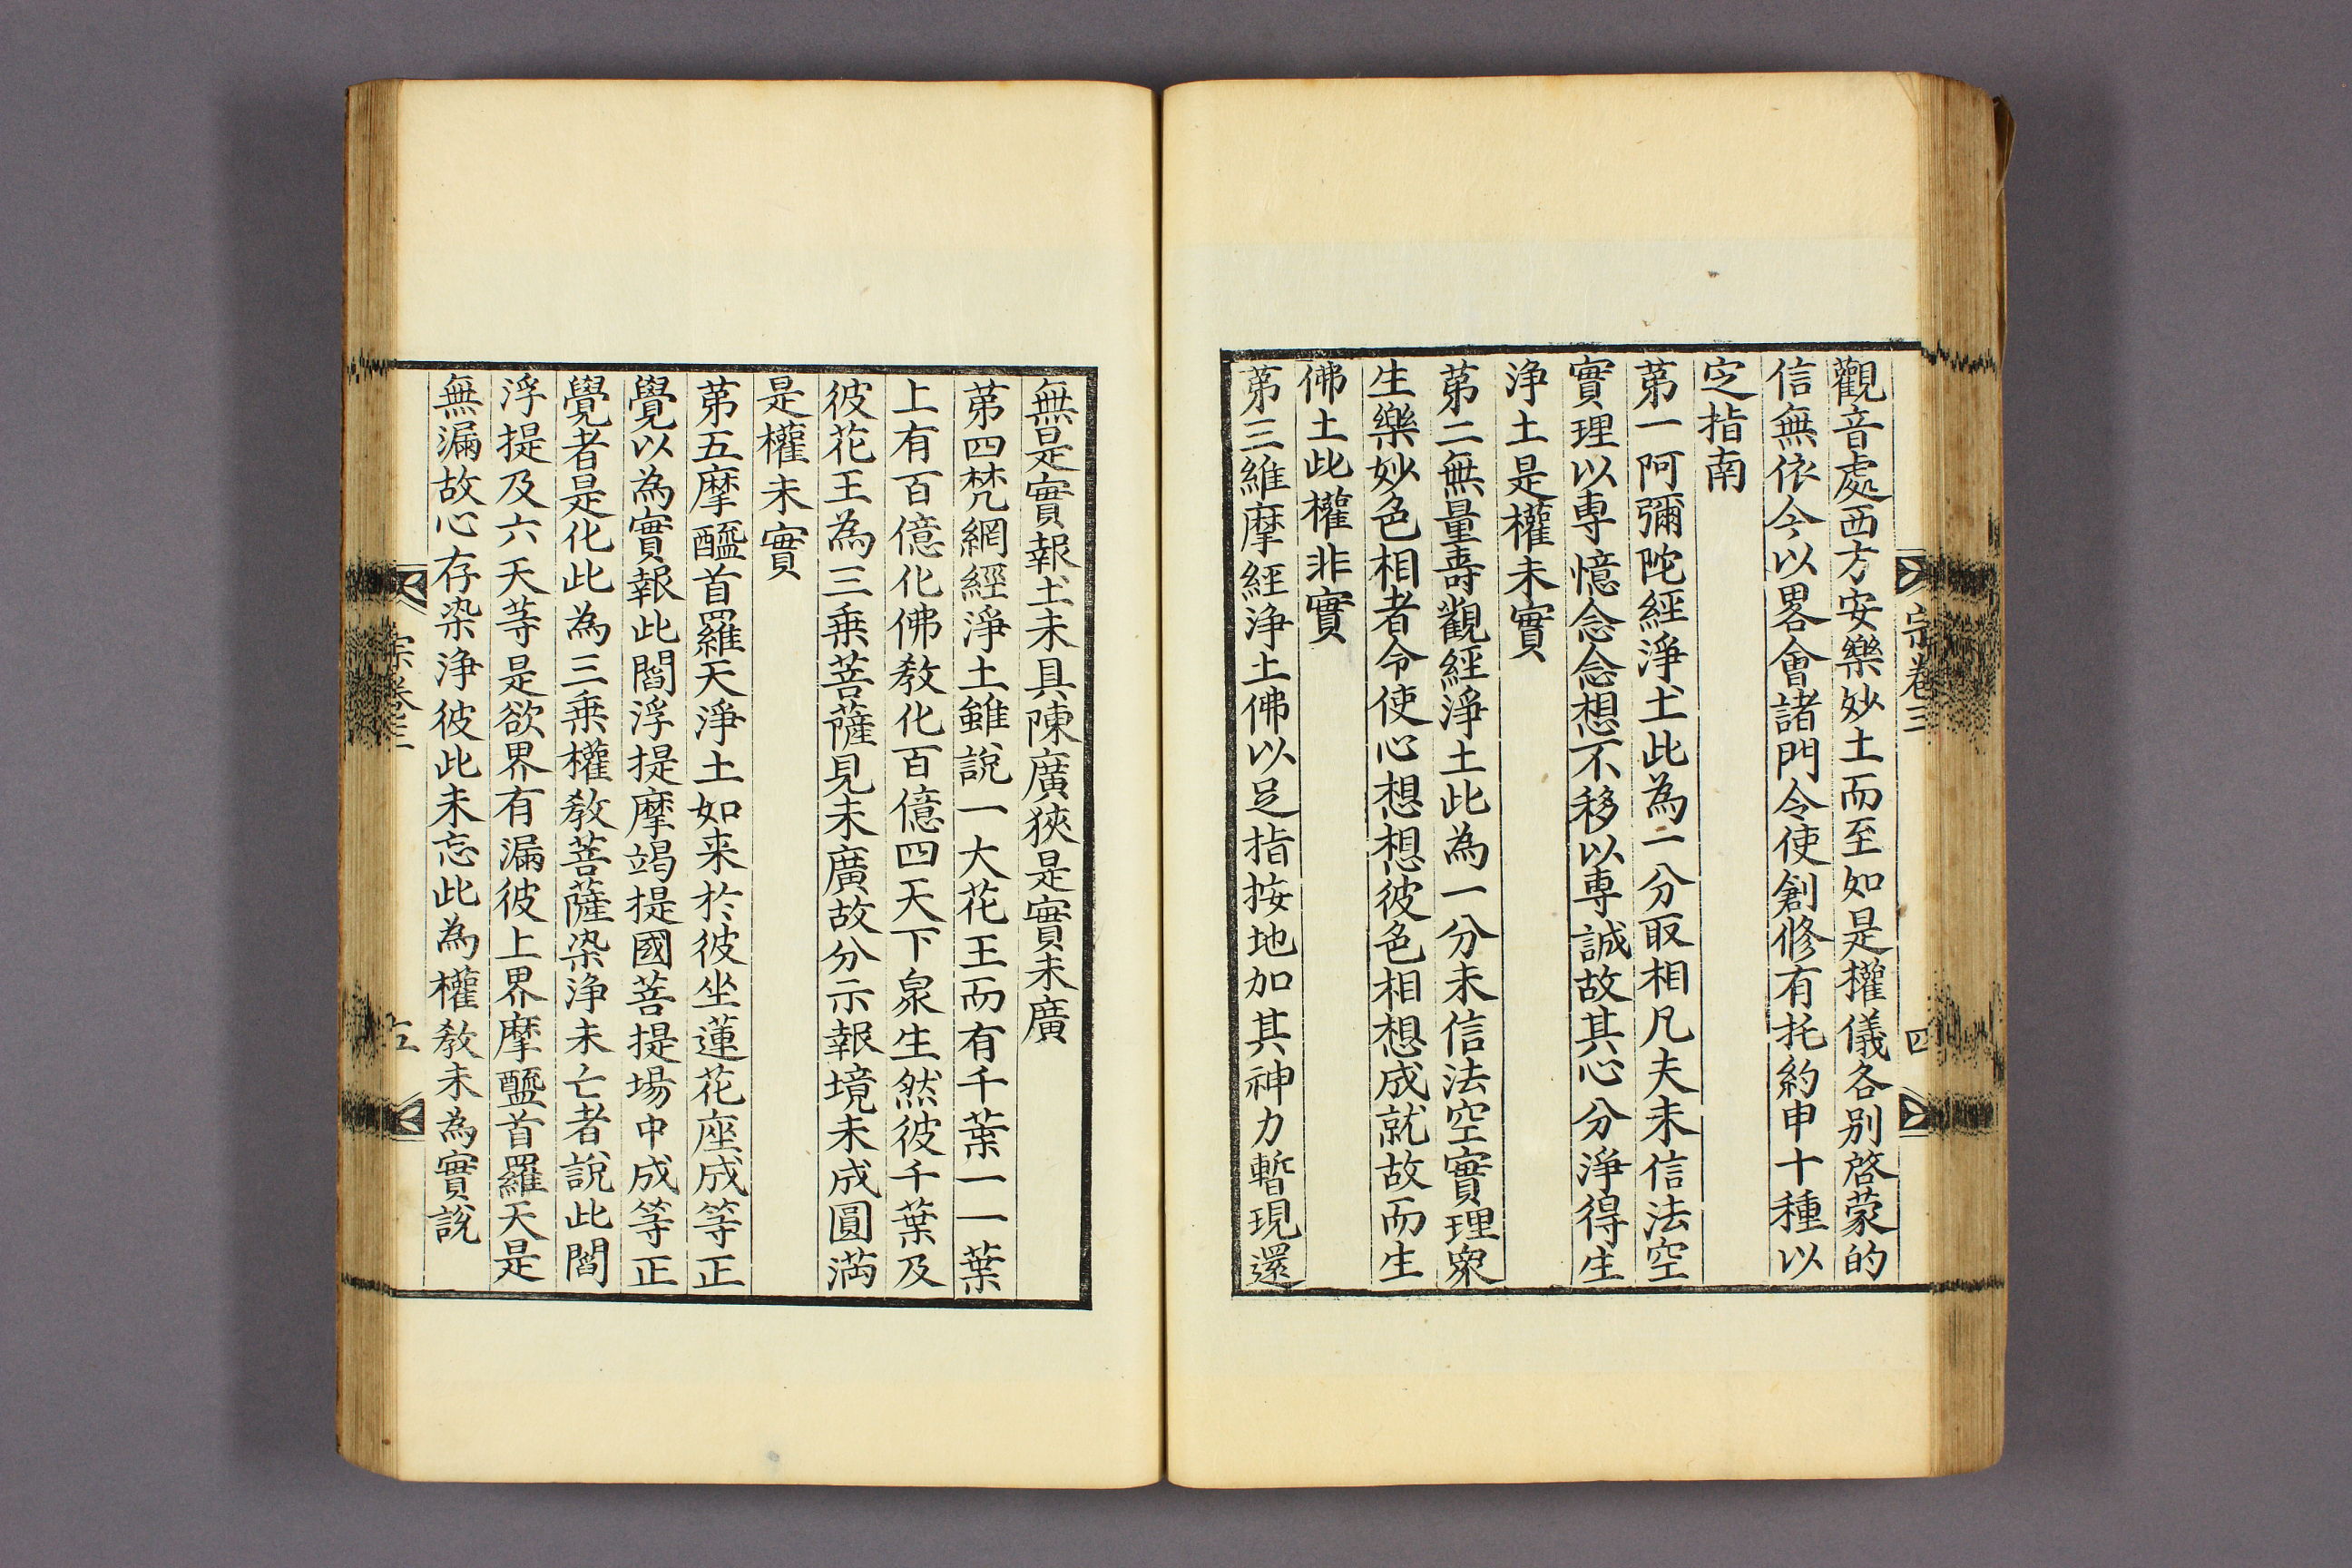 觀音處西方安樂妙土而至如是權儀各别啓蒙的
信無依今以畧會諸門令使創修有托約申十種以
定指南
第一阿彌陀經淨土此為一分取相凡夫未信法空
實理以專憶念念想不移以專誠故其心分淨得生
淨土是權未實
第二無量壽觀經淨土此為一分未信法空實理衆
生樂妙色相者令使心想想彼色相想成就故而生
佛土此權非實
第三維摩經淨土佛以足指按地加其神力暫現還
宗卷三
四
無是實報土未具陳廣狹是實未廣
第四梵網經淨土雖說一大花王而有千葉一一葉
上有百億化佛教化百億四天下衆生然彼千葉及
彼花王為三乗菩薩見未廣故分示報境未成圓滿
是權未實
第五摩醯首羅天淨土如来於彼坐蓮花座成等正
覺以為實報此閻浮提摩竭提國菩提場中成等正
覺者是化此為三乗權教菩薩染淨未亡者說此閻
浮提及六天等是欲界有漏彼上界摩醯首羅天是
無漏故心存染淨彼此未忘此為權教未為實說
宗卷三
五